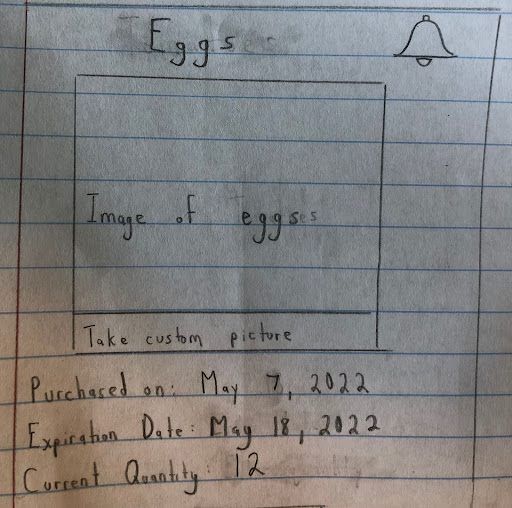 Eggs
Image of eggses
Take custom picture
Purchased on: May 7, 2022
Expiration Date: May 18, 2022
Current Quantity: 12